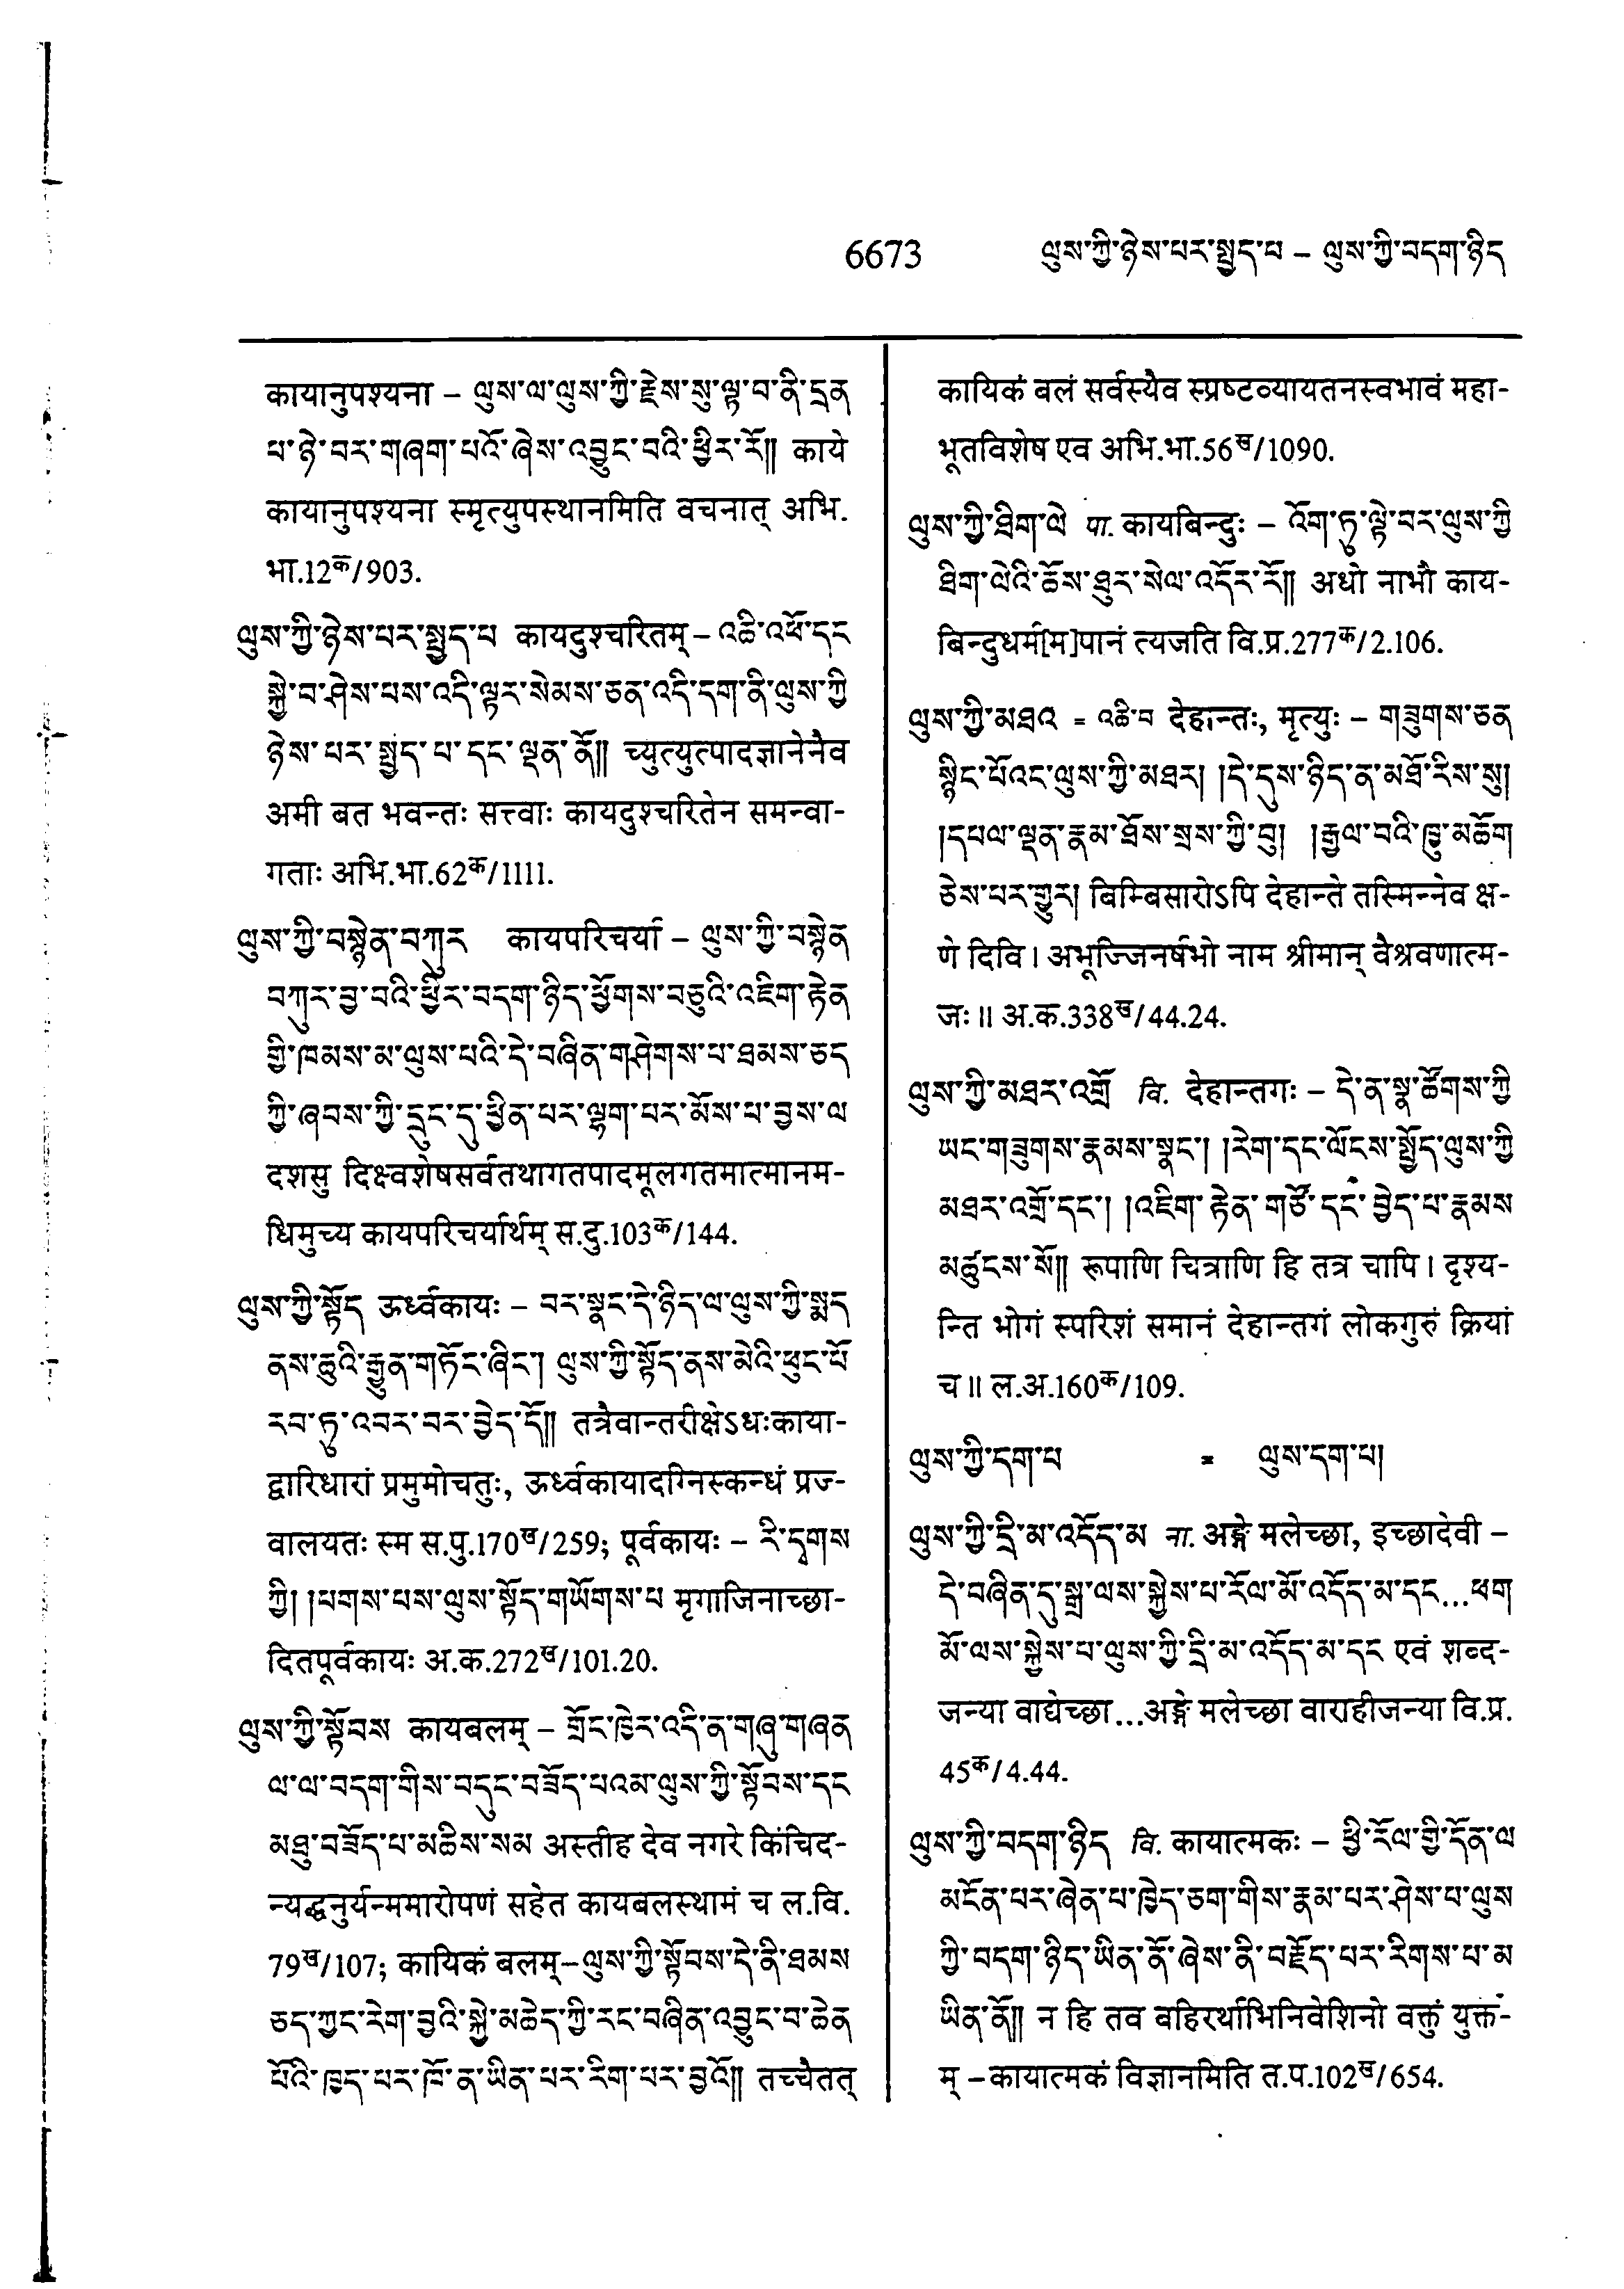 6673 ལུས་ཀྱི་ཉེས་པར་སྤྱད་པ – ལུས་ཀྱི་བདག་ཉིད
कायानुपश्यना – ལུས་ལ་ལུས་ཀྱི་རྗེས་སུ་ལྟ་བ་ནི་དྲན
པ་ཉེ་བར་གཞག་པའོ་ཞེས་འབྱུང་བའི་ཕྱིར་རོ།། काये
कायानुपश्यना स्मृत्युपस्थानमिति वचनात् अभि.
भा.12क/903.
ལུས་ཀྱི་ཉེས་པར་སྤྱད་པ कायदुश्चरितम् – འཆི་འཕོ་དང
སྐྱེ་བ་ཤེས་པས་འདི་ལྟར་སེམས་ཅན་འདི་དག་ནི་ལུས་ཀྱི
ཉེས་པར་སྤྱད་པ་དང་ལྡན་ནོ།། च्युत्युत्पादज्ञानेनैव
अमी बत भवन्तः सत्त्वाः कायदुश्चरितेन समन्वा-
गताः अभि.भा.62क/1111.
ལུས་ཀྱི་བསྙེན་བཀུར कायपरिचर्या – ལུས་ཀྱི་བསྙེན
བཀུར་བྱ་བའི་ཕྱིར་བདག་ཉིད་ཕྱོགས་བཅུའི་འཇིག་རྟེན
གྱི་ཁམས་མ་ལུས་པའི་དེ་བཞིན་གཤེགས་པ་ཐམས་ཅད
ཀྱི་ཞབས་ཀྱི་དྲུང་དུ་ཕྱིན་པར་ལྷག་པར་མོས་པ་བྱས་ལ
दशसु दिक्ष्वशेषसर्वतथागतपादमूलगतमात्मानम-
धिमुच्य कायपरिचर्यार्थम् स.दु.103क/144.
ལུས་ཀྱི་སྟོད ऊर्ध्वकायः – བར་སྣང་དེ་ཉིད་ལ་ལུས་ཀྱི་སྨད
ནས་ཆུའི་རྒྱུན་གཏོང་ཞིང་། ལུས་ཀྱི་སྟོད་ནས་མེའི་ཕུང་པོ
རབ་ཏུ་འབར་བར་བྱེད་དོ།། तत्रैवान्तरीक्षेऽधःकाया-
द्वारिधारां प्रमुमोचतुः, ऊर्ध्वकायादग्निस्कन्धं प्रज्-
वालयतः स्म स.पु.170ख/259; पूर्वकायः – རི་དྭགས
ཀྱི། །པགས་པས་ལུས་སྟོད་གཡོགས་པ मृगाजिनाच्छा-
दितपूर्वकायः अ.क.272ख/101.20.
ལུས་ཀྱི་སྟོབས कायबलम् – གྲོང་ཁྱེར་འདི་ན་གཞུ་གཞན
ལ་ལ་བདག་གིས་བདུང་བཟོད་པའམ་ལུས་ཀྱི་སྟོབས་དང
མཐུ་བཟོད་པ་མཆིས་སམ अस्तीह देव नगरे किंचिद-
न्यद्धनुर्यन्ममारोपणं सहेत कायबलस्थामं च ल.वि.
79ख/107; कायिकं बलम्–ལུས་ཀྱི་སྟོབས་དེ་ནི་ཐམས
ཅད་ཀྱང་རེག་བྱའི་སྐྱེ་མཆེད་ཀྱི་རང་བཞིན་འབྱུང་བ་ཆེན
པོའི་ཁྱད་པར་ཁོ་ན་ཡིན་པར་རིག་པར་བྱའོ།། तच्चैतत्
कायिकं बलं सर्वस्यैव स्प्रष्टव्यायतनस्वभावं महा-
भूतविशेष एव अभि.भा.56ख/1090.
ལུས་ཀྱི་ཐིག་ལེ पा. कायबिन्दुः – འོག་ཏུ་ལྟེ་བར་ལུས་ཀྱི
ཐིག་ལེའི་ཆོས་ཐུར་སེལ་འདོར་རོ།། अधो नाभौ काय-
बिन्दुधर्म[म]पानं त्यजति वि.प्र.277क/2.106.
ལུས་ཀྱི་མཐའ = འཆི་བ देहान्तः, मृत्युः – གཟུགས་ཅན
སྙིང་པོའང་ལུས་ཀྱི་མཐར། །དེ་དུས་ཉིད་ན་མཐོ་རིས་སུ།
།དཔལ་ལྡན་རྣམ་ཐོས་སྲས་ཀྱི་བུ། །རྒྱལ་བའི་ཁྱུ་མཆོག
ཅེས་པར་གྱུར། बिम्बिसारोऽपि देहान्ते तस्मिन्नेव क्ष-
णे दिवि । अभूज्जिनर्षभो नाम श्रीमान् वैश्रवणात्म-
जः ॥ अ.क.338ख/44.24.
ལུས་ཀྱི་མཐར་འགྲོ वि. देहान्तगः – དེ་ན་སྣ་ཚོགས་ཀྱི
ཡང་གཟུགས་རྣམས་སྣང་། །རེག་དང་ལོངས་སྤྱོད་ལུས་ཀྱི
མཐར་འགྲོ་དང་། །འཇིག་རྟེན་གཙོ་དང་བྱེད་པ་རྣམས
མཚུངས་སོ།། रूपाणि चित्राणि हि तत्र चापि । दृश्य-
न्ति भोगं स्परिशं समानं देहान्तगं लोकगुरुं क्रियां
च ॥ ल.अ.160क/109.
ལུས་ཀྱི་དག་པ = ལུས་དག་པ།
ལུས་ཀྱི་དྲི་མ་འདོད་མ ना. अङ्गे मलेच्छा, इच्छादेवी –
དེ་བཞིན་དུ་སྒྲ་ལས་སྐྱེས་པ་རོལ་མོ་འདོད་མ་དང...ཕག
མོ་ལས་སྐྱེས་པ་ལུས་ཀྱི་དྲི་མ་འདོད་མ་དང एवं शब्द-
जन्या वाद्येच्छा...अङ्गे मलेच्छा वाराहीजन्या वि.प्र.
45क/4.44.
ལུས་ཀྱི་བདག་ཉིད वि. कायात्मकः – ཕྱི་རོལ་གྱི་དོན་ལ
མངོན་པར་ཞེན་པ་ཁྱེད་ཅག་གིས་རྣམ་པར་ཤེས་པ་ལུས
ཀྱི་བདག་ཉིད་ཡིན་ནོ་ཞེས་ནི་བརྗོད་པར་རིགས་པ་མ
ཡིན་ནོ།། न हि तव बहिरर्थाभिनिवेशिनो वक्तुं युक्त-
म् –कायात्मकं विज्ञानमिति त.प.102ख/654.